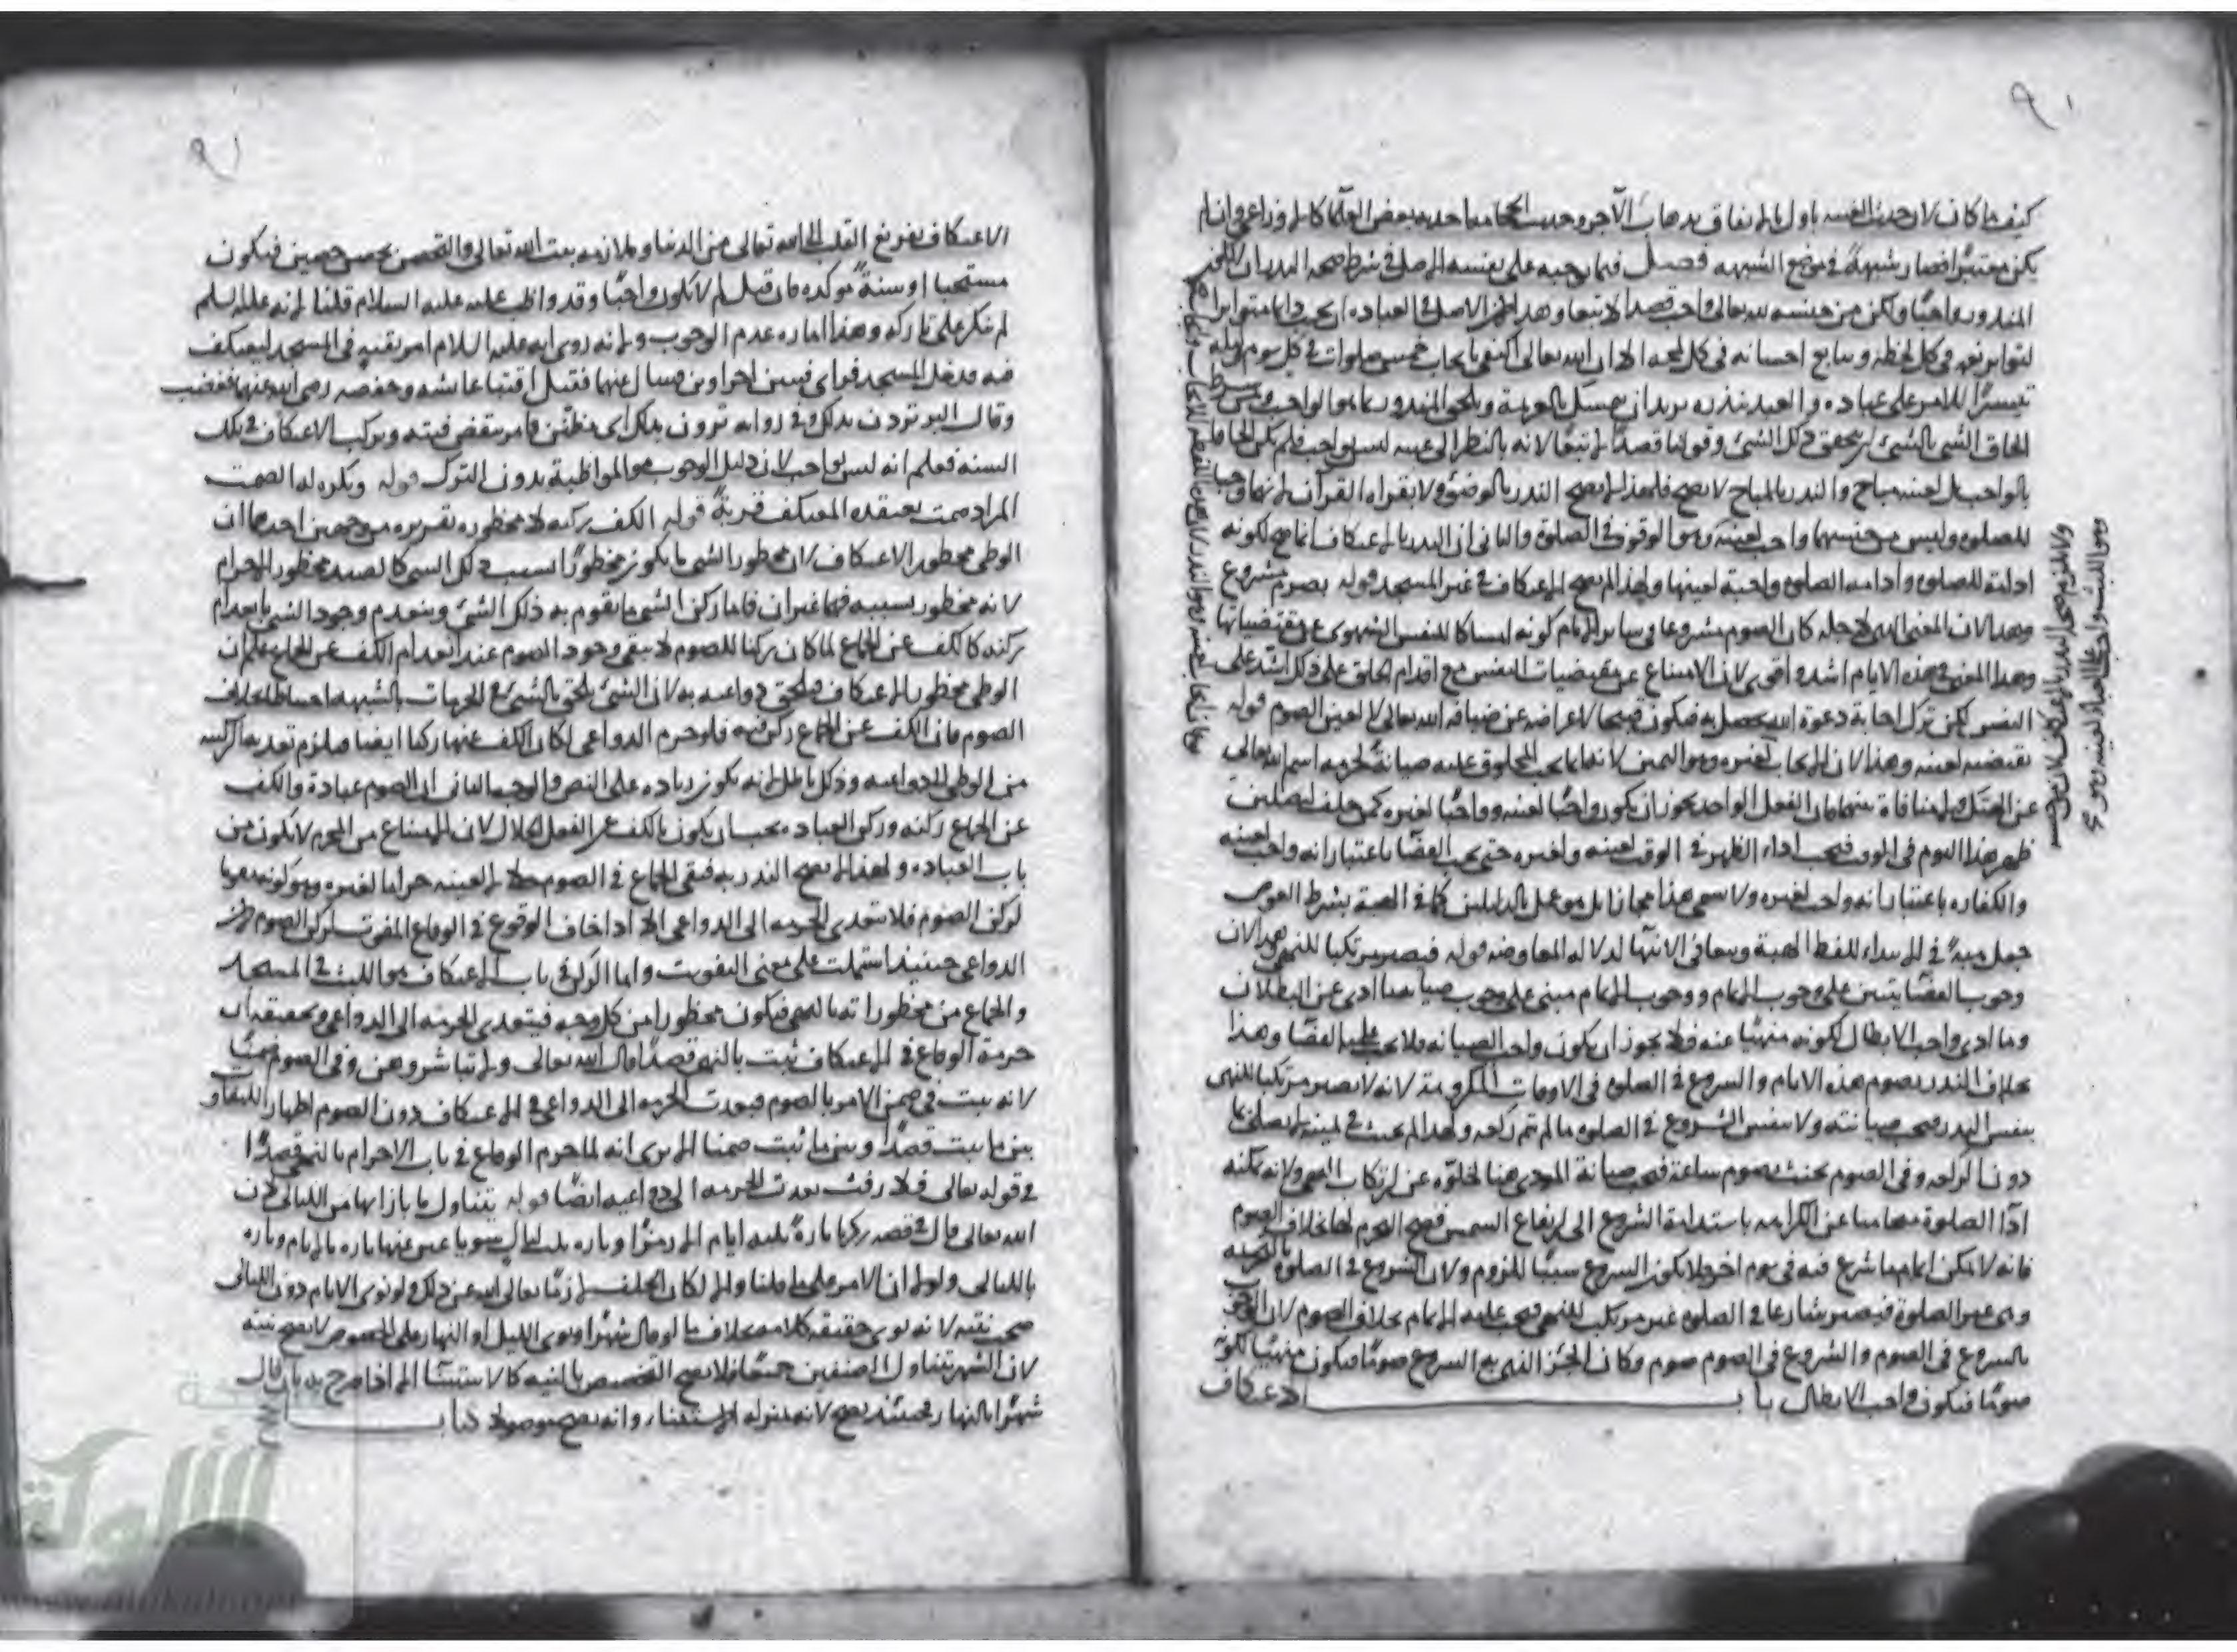 كيف ما كان لان حديث الغيبه ماول بالاتفاق بذهاب الاجر وحديث الحجامة اخذ به بعض العلما كالاوزاعي وان لم
يكن معتبرا فصار شبهة في موضع الشبهه فصل فيما يوجبه على نفسه الاصل في شرط صحه النذر ان
المنذور واجبا ولكن من جنسه لله تعالى واجب قصدا لا تبعا وهذا لان الاصل في العباده ان يجب دائما متواترا
لتواتر نعمه في كل لحظه وتتابع احسانه في كل لمحه الا ان الله تعالى اكتفى بايجاب خمس صلوات في كل يوم وليله
تيسيرا للامر على عباده والعبد بنذره يريد ان يتمسك بالعزيمة ويلحق المنذور بما هو الواجب ومن شرط
الحاق الشي بالشي ان يتحقق ذلك الشي وقولنا قصدا لا تبعا لانه بالنظر الى عينه ليس بواجب فلم يكن الحاقا
بالواجب بل لعينه مباح والنذر بالمباح لا يصح فلهذا لا يصح النذر بالوضوء ولا بقراه القران لانهما وجبا
للصلوه وليس من جنسهما واجب لعينه وهو الوقوف في الصلوة والثاني ان النذر بالاعتكاف انما صح لكونه
ادامة للصلوه وادامه الصلوه واجبة لعينها ولهذا لم يصح الاعتكاف في غير المسجد قوله بصوم مشروع
وهذا لان المعنى الذي لاجله كان الصوم مشروعا في سائر الايام كونه امساكا للنفس الشهوى عن مقتضياتها
وهذا المعنى في هذه الايام اشد واقوى لان الامتناع عن مقتضيات النفس مع اقدام الخلق على ذلك اشد على
النفس لكن ترك اجابة دعوة الله يحصل به فيكون قبيحا لاعراضه عن ضيافه الله تعالى لا لعين الصوم قوله
نقيضه لعينه وهذا لان الايجاب لغيره وهو اليمين لانها ما يجب المحلوف عليه صيانة لحرمه اسم الله تعالى
عن الهتك ولا منافاة بينهما فان الفعل الواحد يجوز ان يكون واجبا لعينه وواجبا لغيره كمن حلف ليصلين
ظهر هذا اليوم في الوقت فيجب اداء الظهر في الوقت لعينه ولغيره حتى يجب القضا باعتبار انه واجب لعينه
والكفاره باعتبار انه واجب لغيره ولا يسمى هذا مجازا بل هو عمل بالدليلين كما في الهبة بشرط العوض
جعل هبة في الابتداء للفظ الهبة وبيعا في الانتها لدلاله المعاوضه قوله فيصير مرتكبا للنهي وهذا لان
وجوب القضا يبتنى على وجوب الاتمام ووجوب الاتمام مبنى على وجوب صيانه ما ادى عن البطلان
وما ادى واجب الابطال لكونه منهيا عنه فلا يجوز ان يكون واجب الصيانه فلا يجب عليه القضا وهذا
بخلاف النذر بصوم هذه الايام والشروع في الصلوة في الاوقات المكروهة لانه لا يصير مرتكبا للنهى
بنفس النذر فيجب صيانته ولا بنفس الشروع في الصلوه ما لم يتم ركعه ولهذا لم يحنث في يمينه لا يصلي بما
دون الركعه وفي الصوم يحنث بصوم ساعة فيجب صيانة المودى هنا لخلوه عن ارتكاب النهي ولانه يمكنه
ادا الصلوة ههنا مجانبا عن الكراهه باستدامة الشروع الى ارتفاع الشمس فصح النهوم لها بخلاف الصوم
فانه لا يمكن اتمام ما شرع فيه في يوم اخر فلا يكون الشروع سببا للزوم ولان الشروع في الصلوة بالتحريمه
وهى غير الصلوة فيصير شارعا في الصلوه غير مرتكب للنهي فيجب عليه الاتمام بخلاف الصوم لان
بالشروع في الصوم والشروع في الصوم صوم وكان الجزء الذي به الشروع صوما فيكون منهيا لكونه
صوما فيكون واجب الابطال باب الاعتكاف
الاعتكاف تفريغ القلب الى الله تعالى من الدنيا وملازمه بيت الله تعالى والتحصن بحصن حصين فيكون
مستحبا او سنة موكده فان قيل لم لا يكون واجبا وقد واظب عليه عليه السلام قلنا لانه عليه السلم
لم ينكر على تاركه وهذا اماره عدم الوجوب ولانه روى انه عليه السلام امر بقبة في المسجد ليعتكف
فيه فدخل المسجد فراى قبتين اخراوين فسال عنها فقيل اقبتا عائشه وحفصه رضى الله عنهما فغضب
وقال البر تردن بذلك وفي روايه ترون بذلك اى تظنن فامر بنقض قبته وترك الاعتكاف في تلك
السنه فعلم انه ليس بواجب لان دليل الوجوب هو المواظبة بدون الترك قوله ويكره له الصمت
المراد صمت يعتقده المعتكف قربة قوله الكف ركنه لا محظوره تقريره من وجهين احدهما ان
الوطى محظور الاعتكاف لان محظور الشي ما يكون محظورا بسبب ذلك الشي كالصيد محظور الاحرام
لانه محظور بسببه فهما غيران فاما ركن الشي ما يقوم به ذلك الشي وينعدم وجود الشي بانعدام
ركنه كالكف عن الجماع لما كان ركنا للصوم لا يبقى وجود الصوم عند انعدام الكف عن الجماع فعلم ان
الوطى محظور الاعتكاف فيلحق دواعيه به لان الشي يلحق بالشي في الحرمات بالشبهه احتياطا بخلاف
الصوم فان الكف عن الجماع ركن فيه فلو حرم الدواعى لكان الكف عنها ركنا ايضا فيلزم تعديه الركنيه
من الوطى الى دواعيه وذلك باطل لانه يكون زياده على النص والوجه الثاني ان الصوم عبادة والكف
عن الجماع ركنه وركن العباده يجب ان يكون بالكف عن الفعل الحلال لان الامتناع من المحرم لا يكون من
باب العباده ولهذا لا يصح النذر به فبقى الجماع في الصوم حلالا لعينه حراما لغيره وهو كونه مفوتا
لركن الصوم فلا تتعدى الحرمه الى الدواعى الا اذا خاف الوقوع في الوقاع المفوت لركن الصوم
الدواعى حينئذ اشتملت على معنى التفويت واما الركن في باب الاعتكاف هو اللبث في المسجد
والجماع من محظوراته بالنهي فيكون محظورا من كل وجه فيتعدى الحرمه الى الدواعى وتحقيقه ان
حرمة الوقاع في الاعتكاف ثبت بالنهي قصدا قال الله تعالى ولا تباشروهن وفي الصوم ضمنا
لانه ثبت في ضمن الامر بالصوم فيعدت الحرمه الى الدواعي في الاعتكاف دون الصوم اظهارا للتفاوت
بين ما ثبت قصدا وبين ما ثبت ضمنا الا يرى انه لما حرم الوقاع في باب الاحرام بالنهي قصدا
في قوله تعالى فلا رفث تعدت الحرمه الى دواعيه ايضا قوله يتناول ما بازائها من الليالى لان
الله تعالى قال في قصه زكريا تارة ثلثه ايام الا رمزا وتاره ثلث ليال سويا عبر عنها تاره بالايام وتاره
بالليالى ولولا ان الامر على ما قلنا والا لكان الخلف لازما تعالى الله عن ذلك ولو نوى الايام دون الليالى
صحت نيته لانه نوى حقيقه كلامه بخلاف ما لو قال شهرا ونوى الليل او النهار على الخصوص لا تصح نيته
لان الشهر يتناول الصنفين جميعا فلا يصح التخصيص بالنيه كالاستثنا الا اذا صرح به بان قال
شهرا بالنهار فحينئذ يصح لانه بمنزله الاستثناء وانه يصح موصولا كتاب الحج